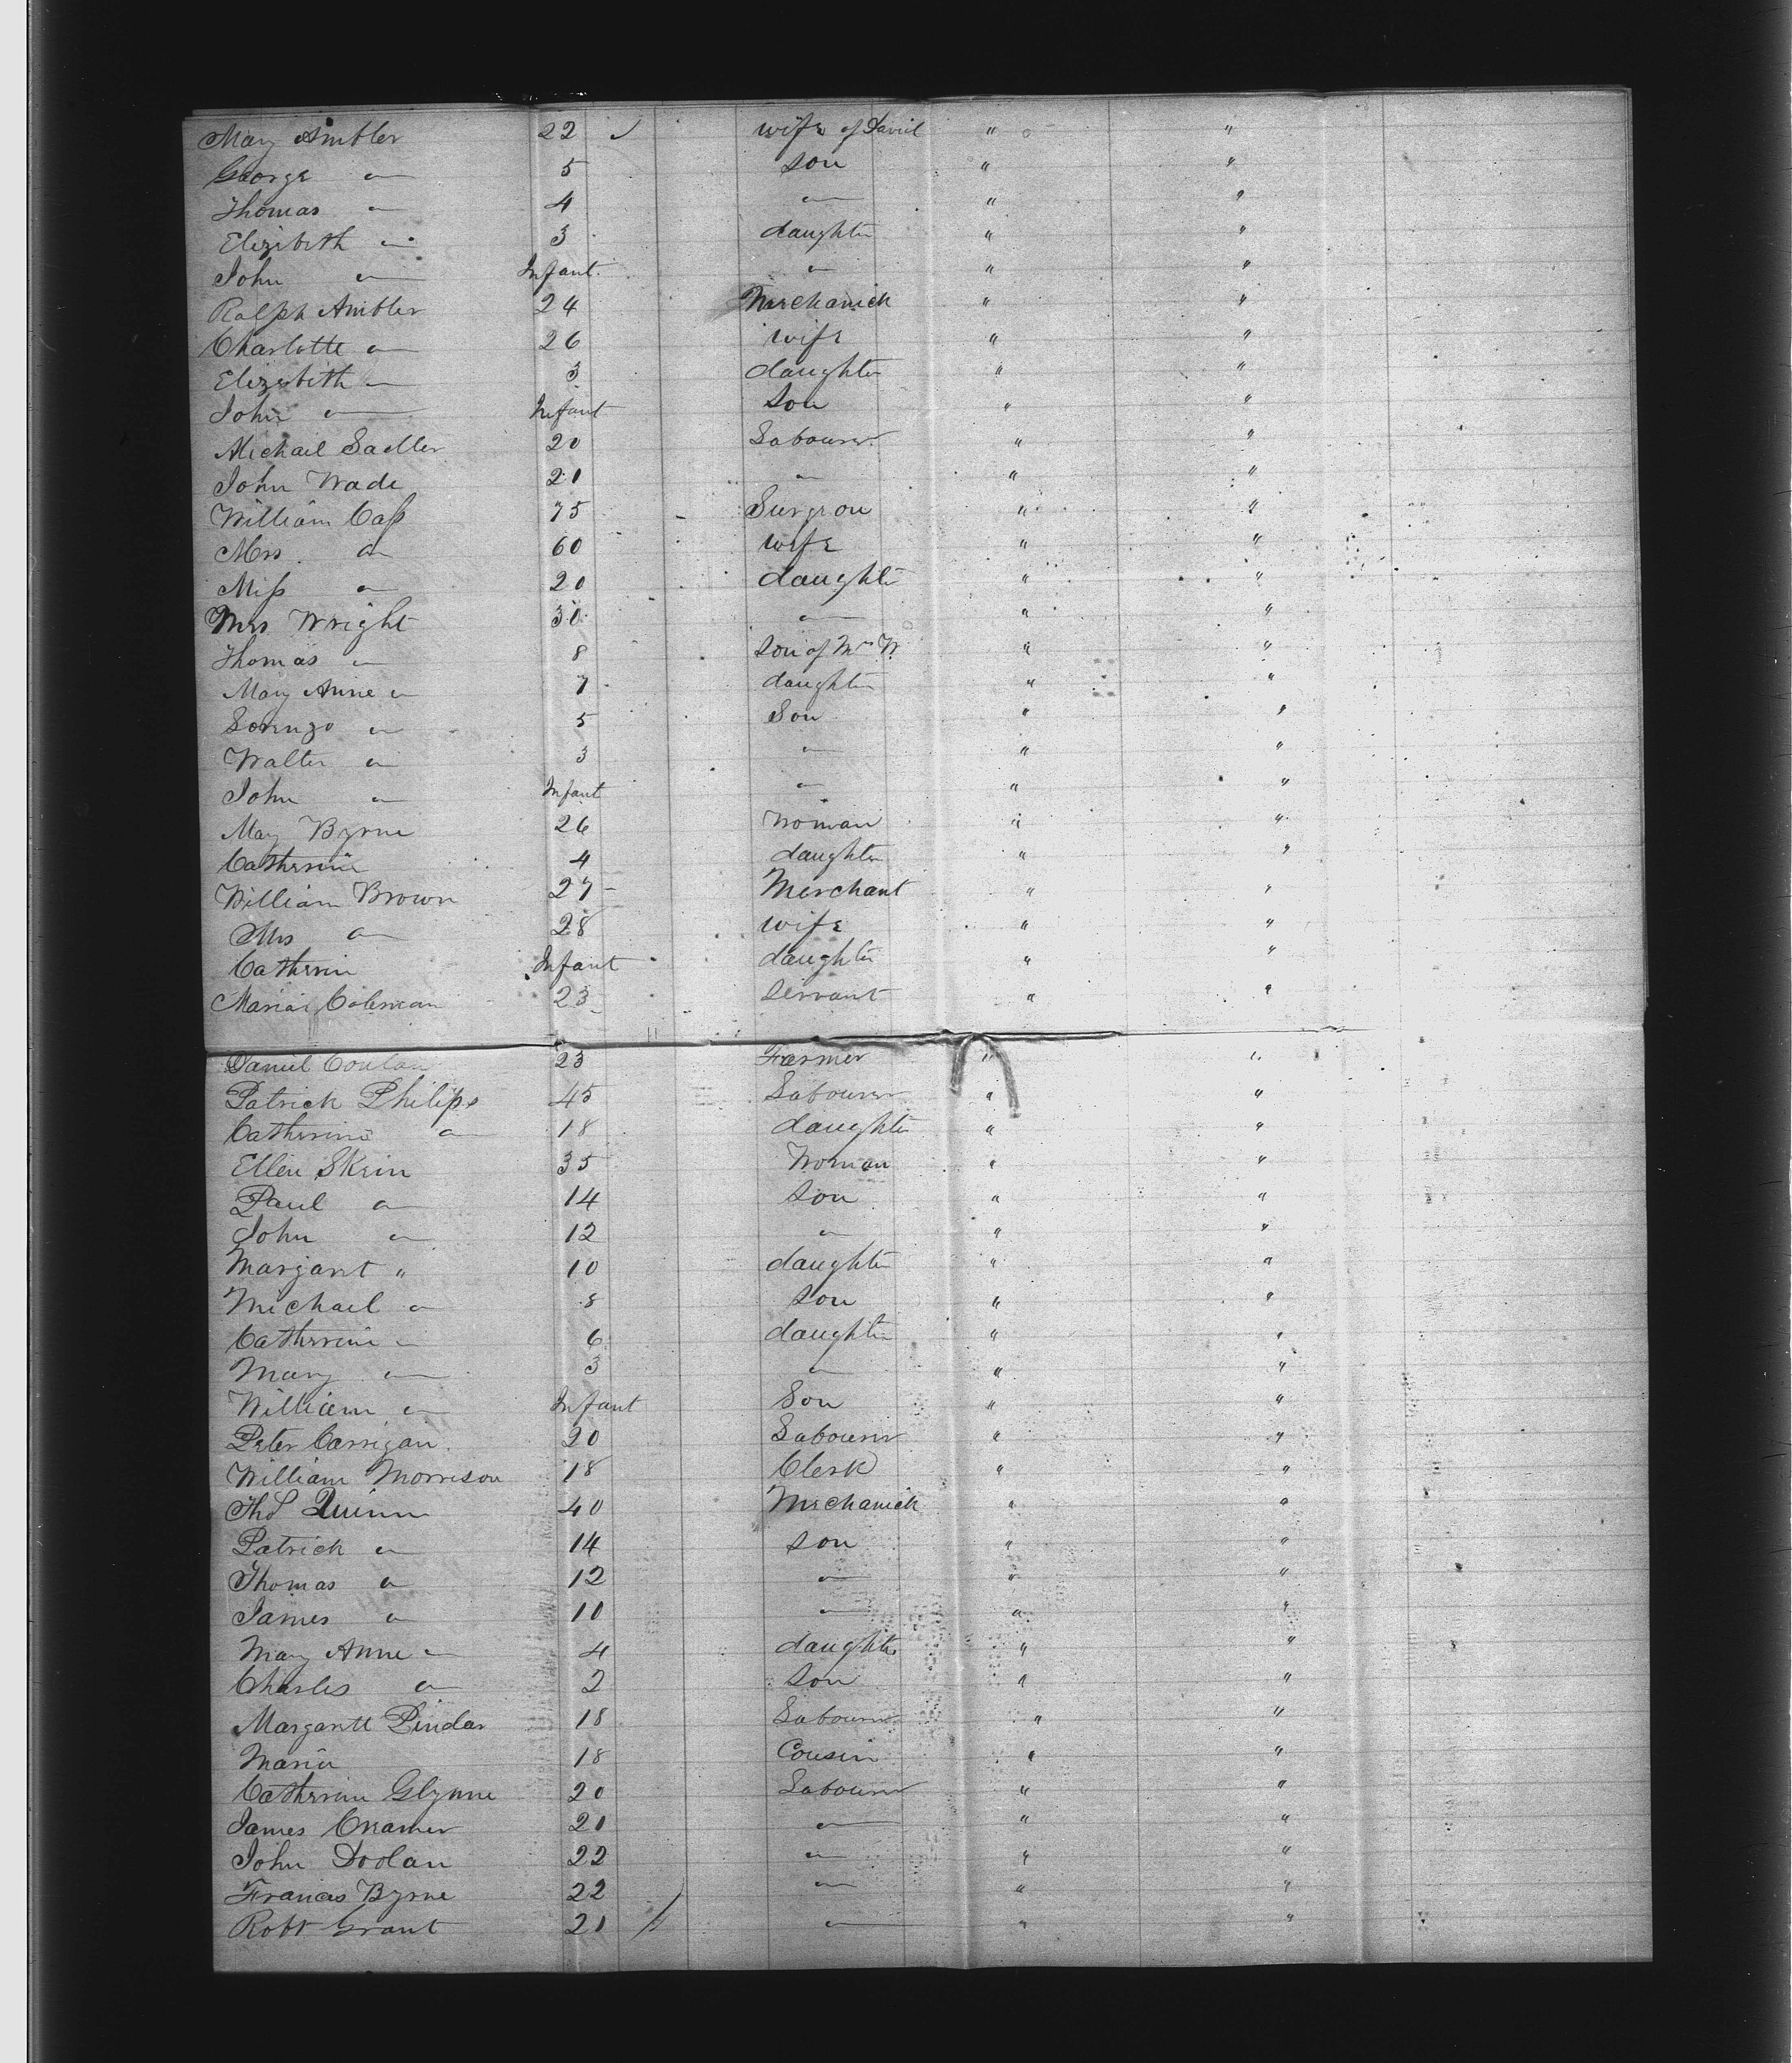 Mary Ambler 22 ✓ wife of David " "
George " 5 son " "
Thomas " 4 " " "
Elizibeth " 3 daughter " "
John " Infant " " "
Ralph Ambler 24 Mechanick " "
Charlotte " 26 wife " "
Elizabeth " 3 daughter " "
John " Infant Son " "
Michael Sadler 20 Labourer " "
John Wade 21 " " "
William Cass 75 Surgeon " "
Mrs " 60 wife " "
Miss " 20 daughter " "
Mrs Wright 30 " " "
Thomas " 8 son of Mrs W. " "
Mary Anne " 7 daughter " "
Lorenzo " 5 Son " "
Walter " 3 " " "
John " Infant " " "
Mary Byrne 26 Woman " "
Catherine 4 daughter " "
William Brown 27 Merchant " "
Mrs " 28 wife " "
Catherin Infant daughter " "
Maria Coleman 23 Servant " "
Daniel 23 Farmer " "
Patrick Philips 45 Labourer " "
Catherine " 18 daughter " "
Ellen Skein 35 Woman " "
Paul " 14 Son " "
John " 12 " " "
Margaret " 10 daughter " "
Michael " 8 Son " "
Catherine " 6 daughter " "
Mary " 3 " " "
William " Infant Son " "
Peter Carrigan 20 Labourer " "
William Morrison 18 Clerk " "
Thos Quinn 40 Mechanick " "
Patrick " 14 son " "
Thomas " 12 " " "
James " 10 " " "
Mary Anne " 4 daughter " "
Charles " 2 Son " "
Margarett Pindar 18 Labourer " "
Maria 18 Cousin " "
Catherine Glynne 20 Labourer " "
James Cramer 21 " " "
John Doolan 22 " " "
Francis Byrne 22 " " "
Robt Grant 21 " " "